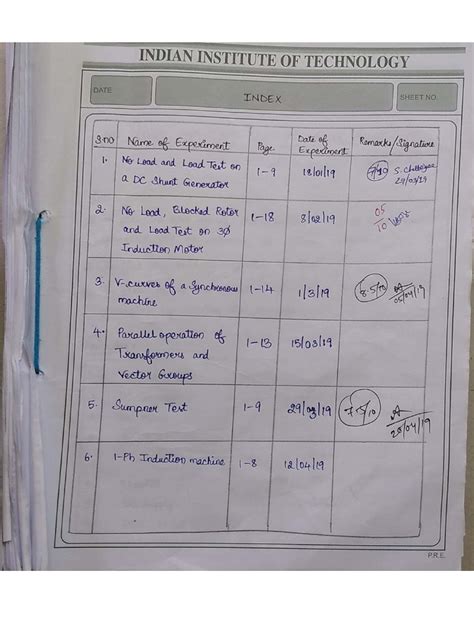 INDIAN INSTITUTE OF TECHNOLOGY
DATE
INDEX
SHEET NO.
S.no Name of Experiment Page Date of Experiment Remarks/Signature
1. No Load and Load Test on a DC Shunt Generator 1-9 18/01/19 7/10
29/03/19
2. No Load, Blocked Rotor and Load Test on 3Ø Induction Motor 1-18 8/02/19 05/10
3. V-curves of a Synchronous machine 1-14 1/3/19 8.5/10 05/04/19
4. Parallel operation of Transformers and Vector Groups 1-13 15/03/19
5. Sumpner Test 1-9 29/03/19 7.5/10
6. 1-Ph Induction machine 1-8 12/04/19
P.R.E.